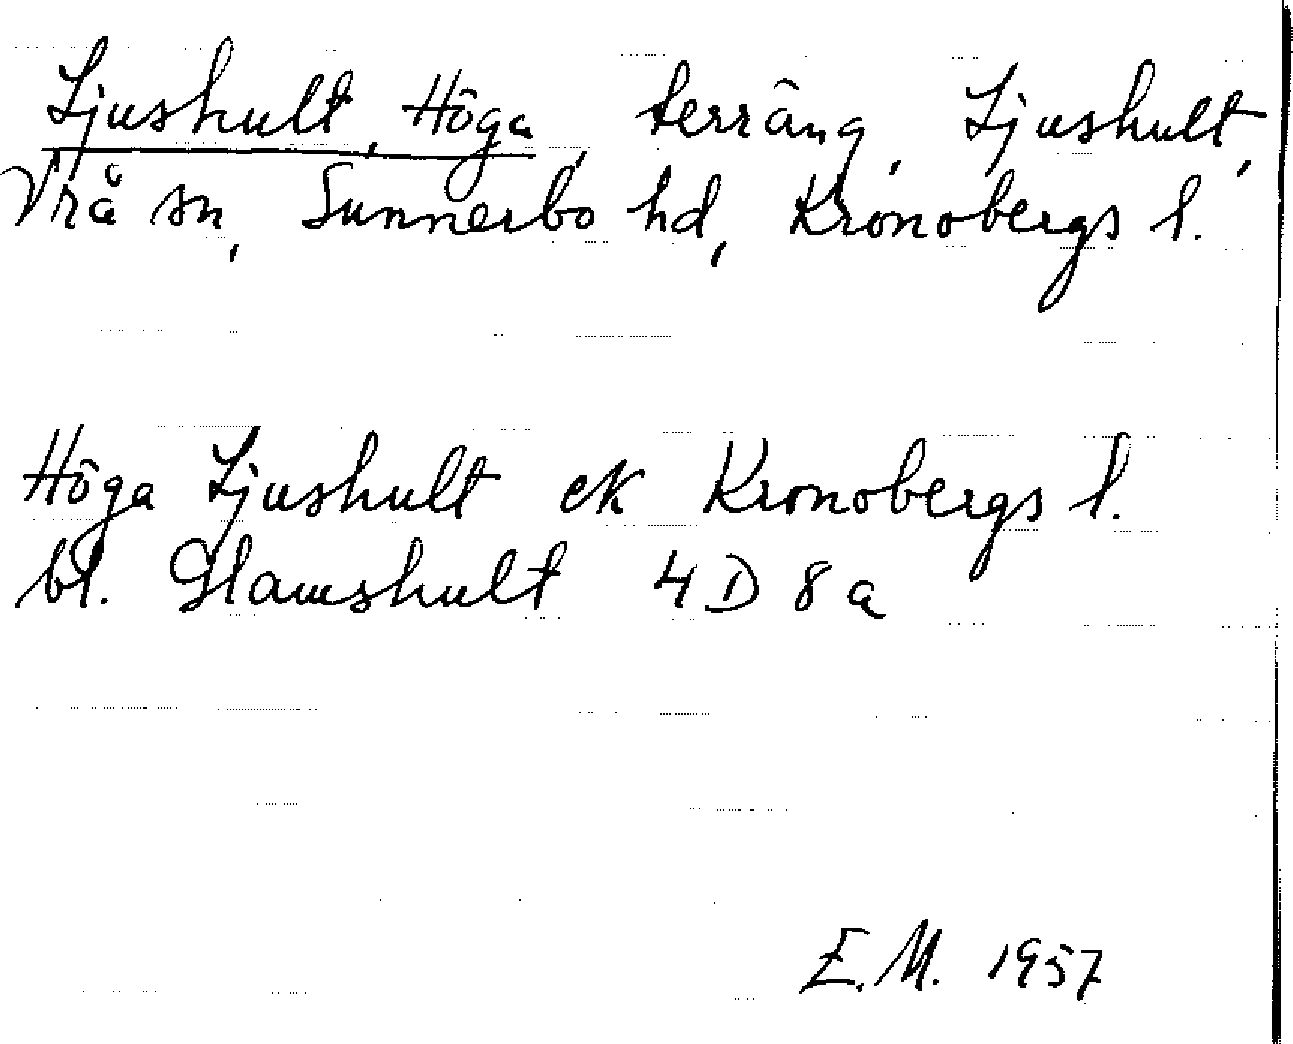 Ljushult, Höga, terräng, Ljushult,
Vrå sn, Sunnerbo hd, Kronobergs l.
Höga Ljushult ek Kronobergs l.
bl. Slamshult 4 D 8 a
E.M. 1957